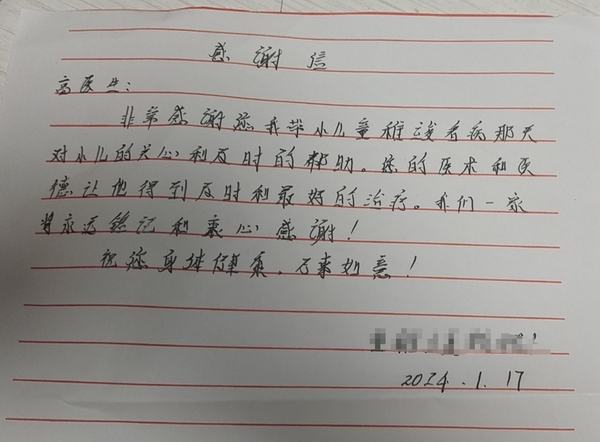 感谢信
高医生:
非常感谢您我毕小儿童稚浚看病那天
对小儿的关心和及时的帮助。您的医术和医
德让他得到及时和最好的治疗。我们一家
将永远铭记和衷心感谢!
祝您身体健康,万事如意!
2024.1.17